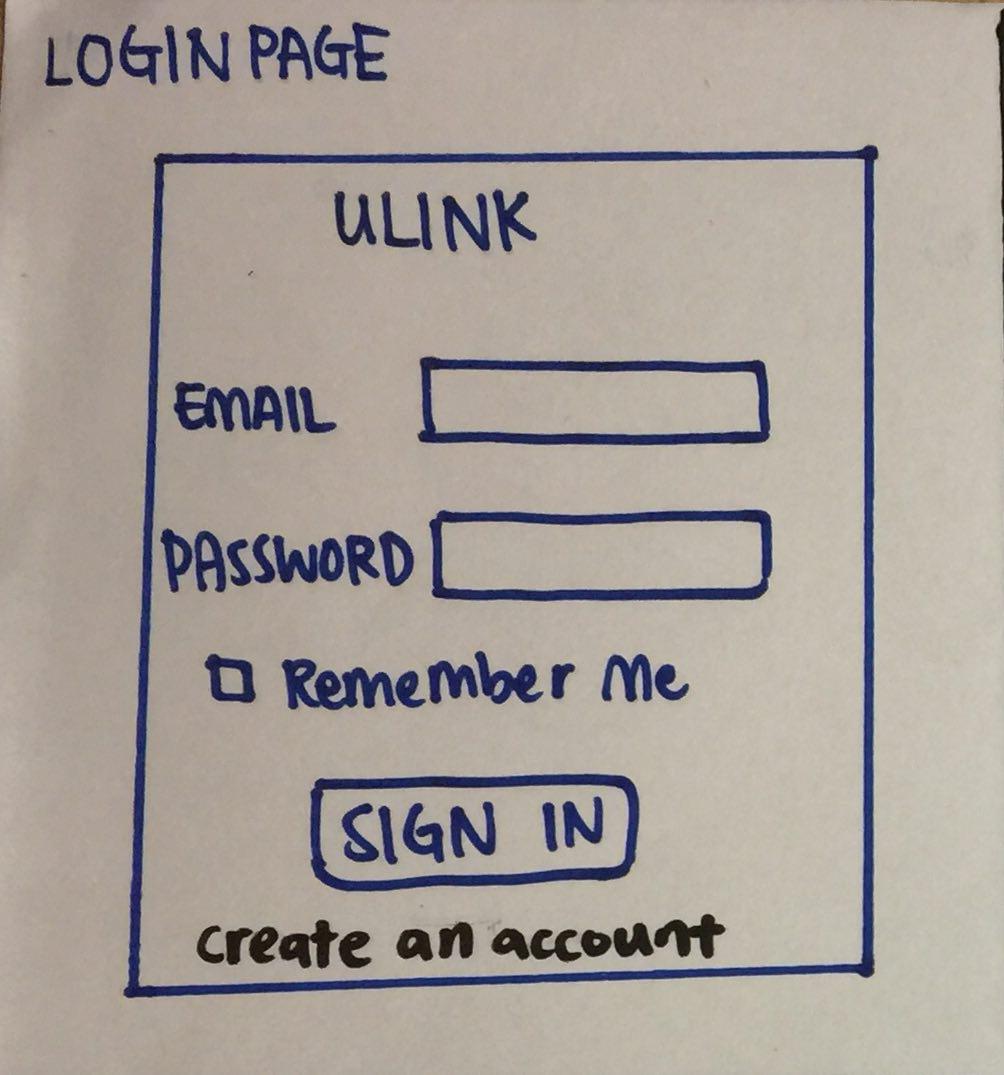 LOGIN PAGE
ULINK
EMAIL
PASSWORD
Remember Me
SIGN IN
create an account